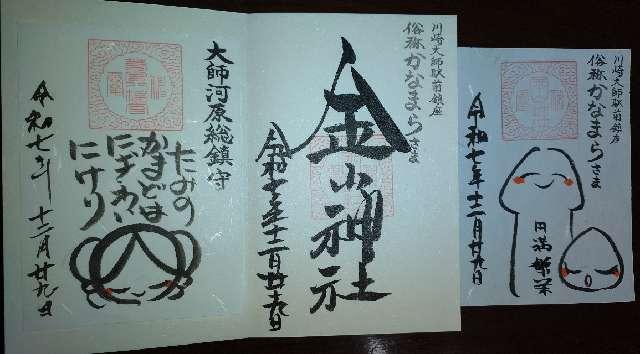 大師河原総鎮守
たみの
かまどは
にぎわい
にけり
令和七年十二月廿九日
川崎大師駅前鎮座
俗称かなまらさま
金山神社
令和七年十二月廿九日
川崎大師駅前鎮座
俗称かなまらさま
円満繁栄
令和七年十二月廿九日